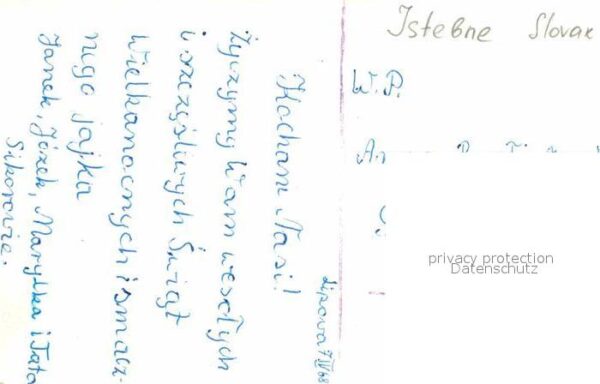 Istebne Slovak
W.P.
privacy protection
Datenschutz
Lipowa 7 IV 68
Kochani Nasi!
Życzymy Wam wesołych
i szczęśliwych Świąt
Wielkanocnych i smacz-
nego jajka
Janek, Józek, Marylka i Tata
Sikorowie.